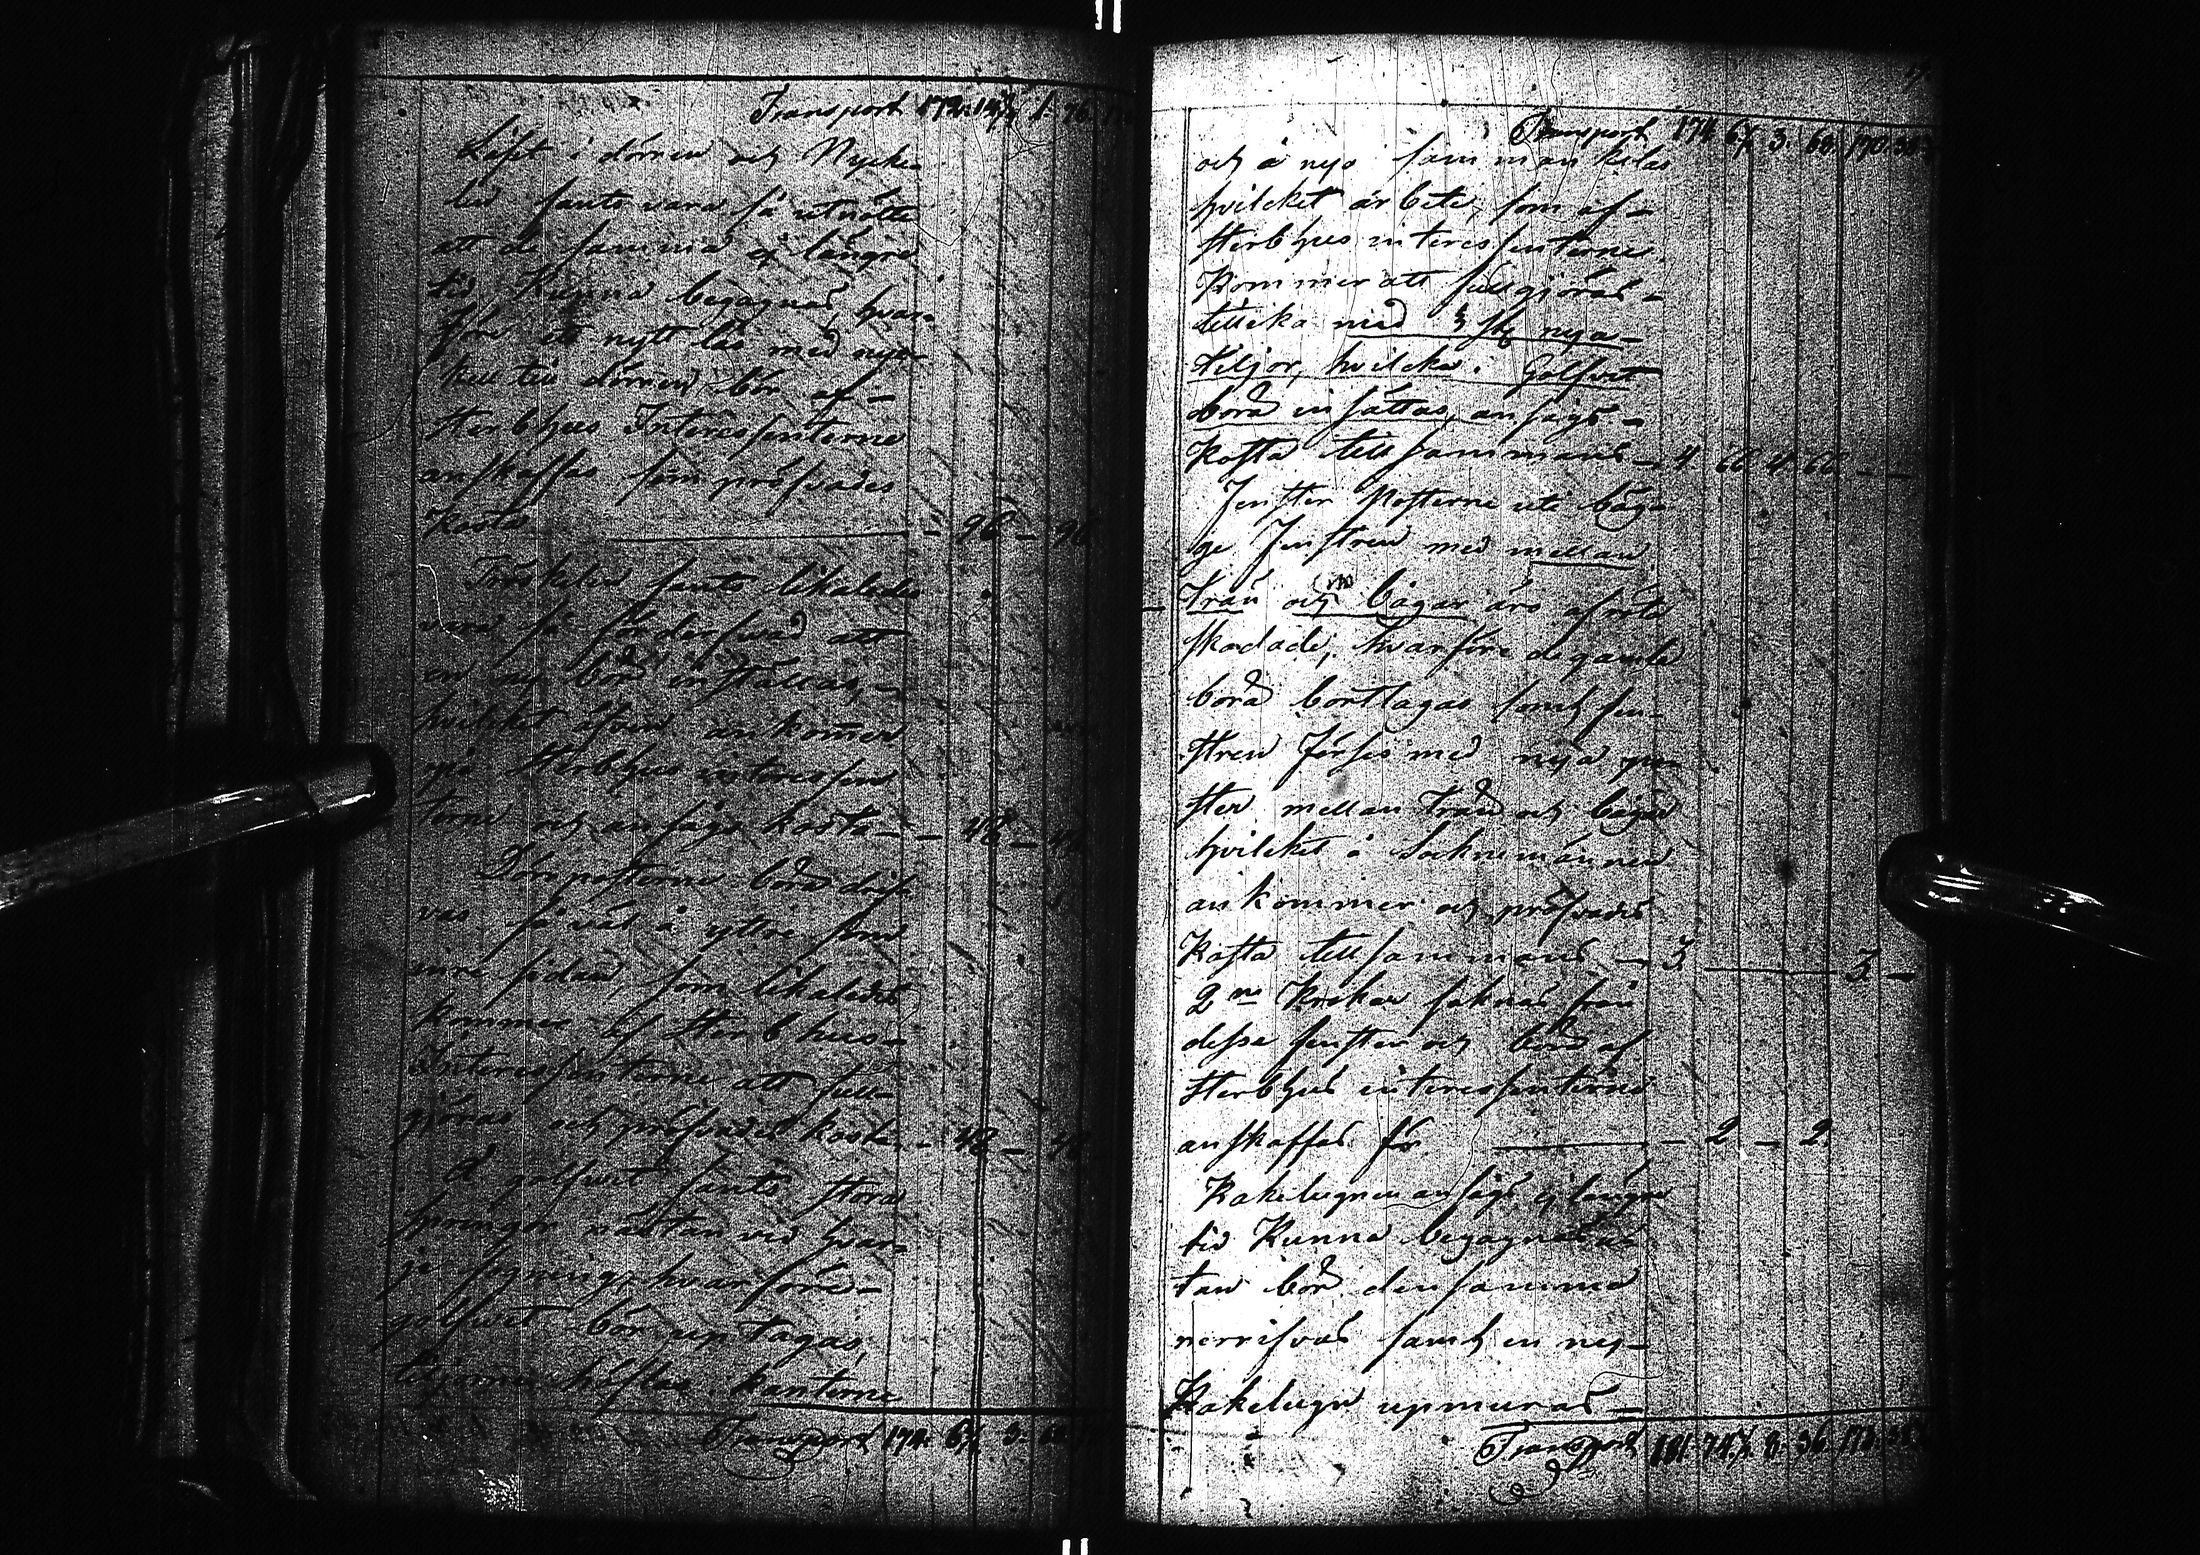 Transport 172. 14½ 1. 76.
Låset i dörren och Nycke-
len fants vara så utnötte
att de samma ej längre
tid Kunna begagnas, hvar-
före ett nytt lås med nyc-
kel till dörren bör af-
Sterbhus Interessenterne
anskaffas som pröfvades
Kosta - 96 - 96
Tröskelen fants likaledes
vara så förderfvad att
en ny bör inställas,
hvilcket äfven ankommer
på Sterbhus interessen
terne och ansågs kosta - - 48 - 48
Dörrposterne böra drif-
vas så väl å yttre som
inre sidan, som likaledes
kommer af Sterbhus-
Interessenterne att full-
göras och pröfvades kosta - 48 - 48
å golfvet fants stora
springor nästan vid hvar-
je fogning, hvarföre-
golfvet bör uptagas
tiljorne häflas kanterne
Transport 174. 6½ 3. 68
Transport 174. 6½ 3. 68. 170. 38½
och å nyo samman kilas
hvilcket arbete, som af-
Sterbhus interessenterne
Kommer att fullgjöras-
tillika med 3 st nya-
tiljor, hvilcka. Golfvet
böra insättas, ansågs-
Kosta tillsammans - 4 68 4. 68 - -
Fenster Posterne uti båg-
ge Fenstren med mellan
Trän och bågar äro af röta
skadade, hvarföre de gamle
böra borttagas samt fen-
stren förses med nya po-
ster mellan Träd och bågar
hvilcket å Socknemännen
ankommer och pröfvades
Kosta tillsammans - 3 - 3. -
2ne Krokar saknas från
desse fenster och böra af
Sterbhus interessenterne
anskaffas för - 2 - 2
Kakelugnen ansågs ej längre
tid Kunna begagnas u-
tan bör den samma
nerrifvas samt en ny-
Kakelugn upmuras-
Transport 181. 74½ 8. 36. 173. 38½